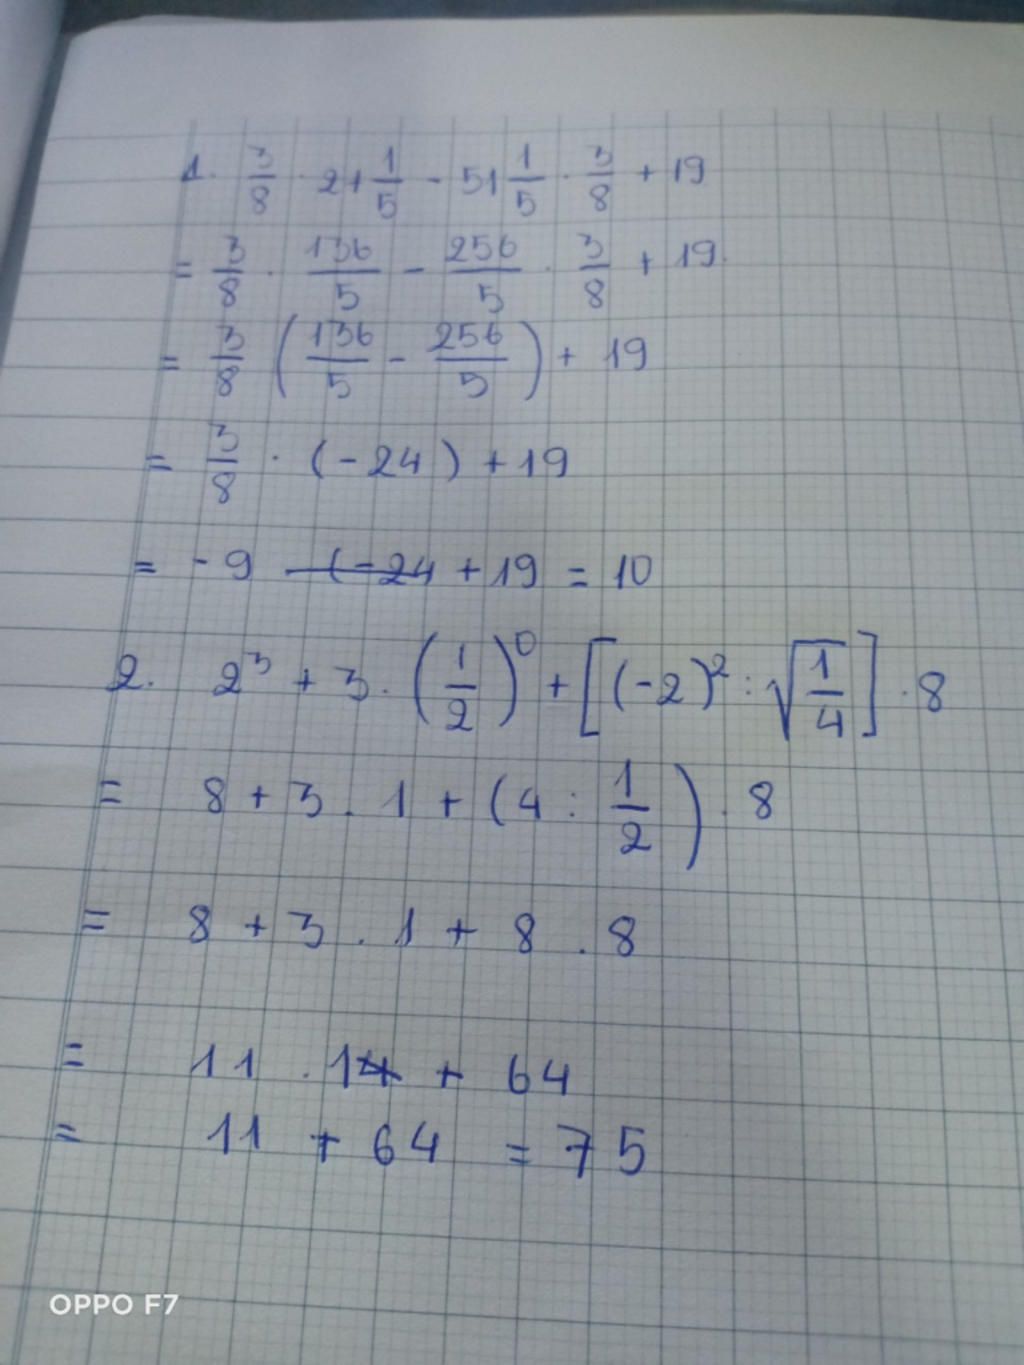 1. 3/8 · 27 1/5 - 51 1/5 · 3/8 + 19
= 3/8 · 136/5 - 256/5 · 3/8 + 19.
= 3/8 (136/5 - 256/5) + 19
= 3/8 · (-24) + 19
= -9 (-24 + 19 = 10
2. 2³ + 3. (1/2)⁰ + [(-2)² : √1/4] . 8
= 8 + 3 . 1 + (4 : 1/2) . 8
= 8 + 3 . 1 + 8 . 8
= 11 . 14 + 64
= 11 + 64 = 75
OPPO F7